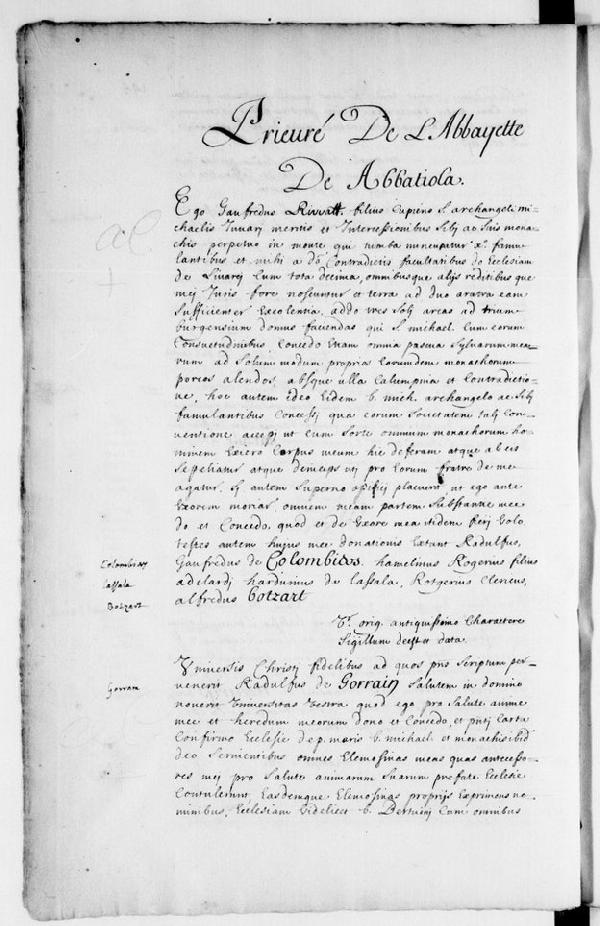 Prieuré De L'Abbayette
De Abbatiola.
Ego Gaufredus Rivvatt. filius Cupiens S. archangeli mi-
chaelis Juvarj meritis et Intercessionibus Sibj ac Suis mona-
chis perpetuo in monte qui tumba nuncupatur xo. famu-
lantibus et mihi a do Contradictis facultatibus do Ecclesiam
de Livarej Cum tota decima, omnibusque alijs reditibus que
mej Juris fore noscuntur et terra ad duo aratra eam
Sufficienter Excolentia, addo tres Sol areas ad trium
burgensium domus faciendas qui S. michael. Cum eorum
Consuetudinibus Concedo Etiam omnia pascua Sylvarum mea-
rum ad Solum modum proprios Eorumdem monachorum
porcos alendos, absque ulla Calumpnia et Contradictio-
ne, hoc autem ideo Eidem b. mich. archangelo ac Sibj
famulantibus Concessj qua eorum Societatem talj Con-
ventione accepj ut Cum Sorte omnium monachorum ho-
minem Exiero Corpus meum hic deferam atque ab eis
Sepeliatur atque deinceps utj pro Eorum fratre de me
agatur, Sj autem Superno opificj placuerit ut ego ante
Exorem moriar, omnem meam partem Substantie me-
do et Concedo, quod et de Exore mea itidem fierj Volo
testes autem hujus mee donationis Extant Radulfus,
Gaufredus de Colombiers. hamelinus Rogerius filius
adelardj harduinus de lassala, Rotgerius Clericus,
alfredus botzart
Colombiers
lassala
Botzart
Vt. orig. antiquissimo Charactere
Sigillum deest et data.
Universis Christj fidelibus ad quos pns Scriptum per-
venerit Radulfus de Gorrain Salutem in domino
noverit Universitas Vestra quod ego pro Salute anime
mee et heredum meorum dono et Concedo, et pntj Carta
Confirmo Ecclesie de p. maris b. michael. et monachis ibid
deo Servientibus omnes Elemosinas meas quas antecesso-
res mej pro Salute animarum Suarum prefate Ecclesie
Contulerunt Easdemque Elemosinas proprijs Exprimens no-
minibus, Ecclesiam Videlicet b. Bertivinj Cum omnibus
Gorram